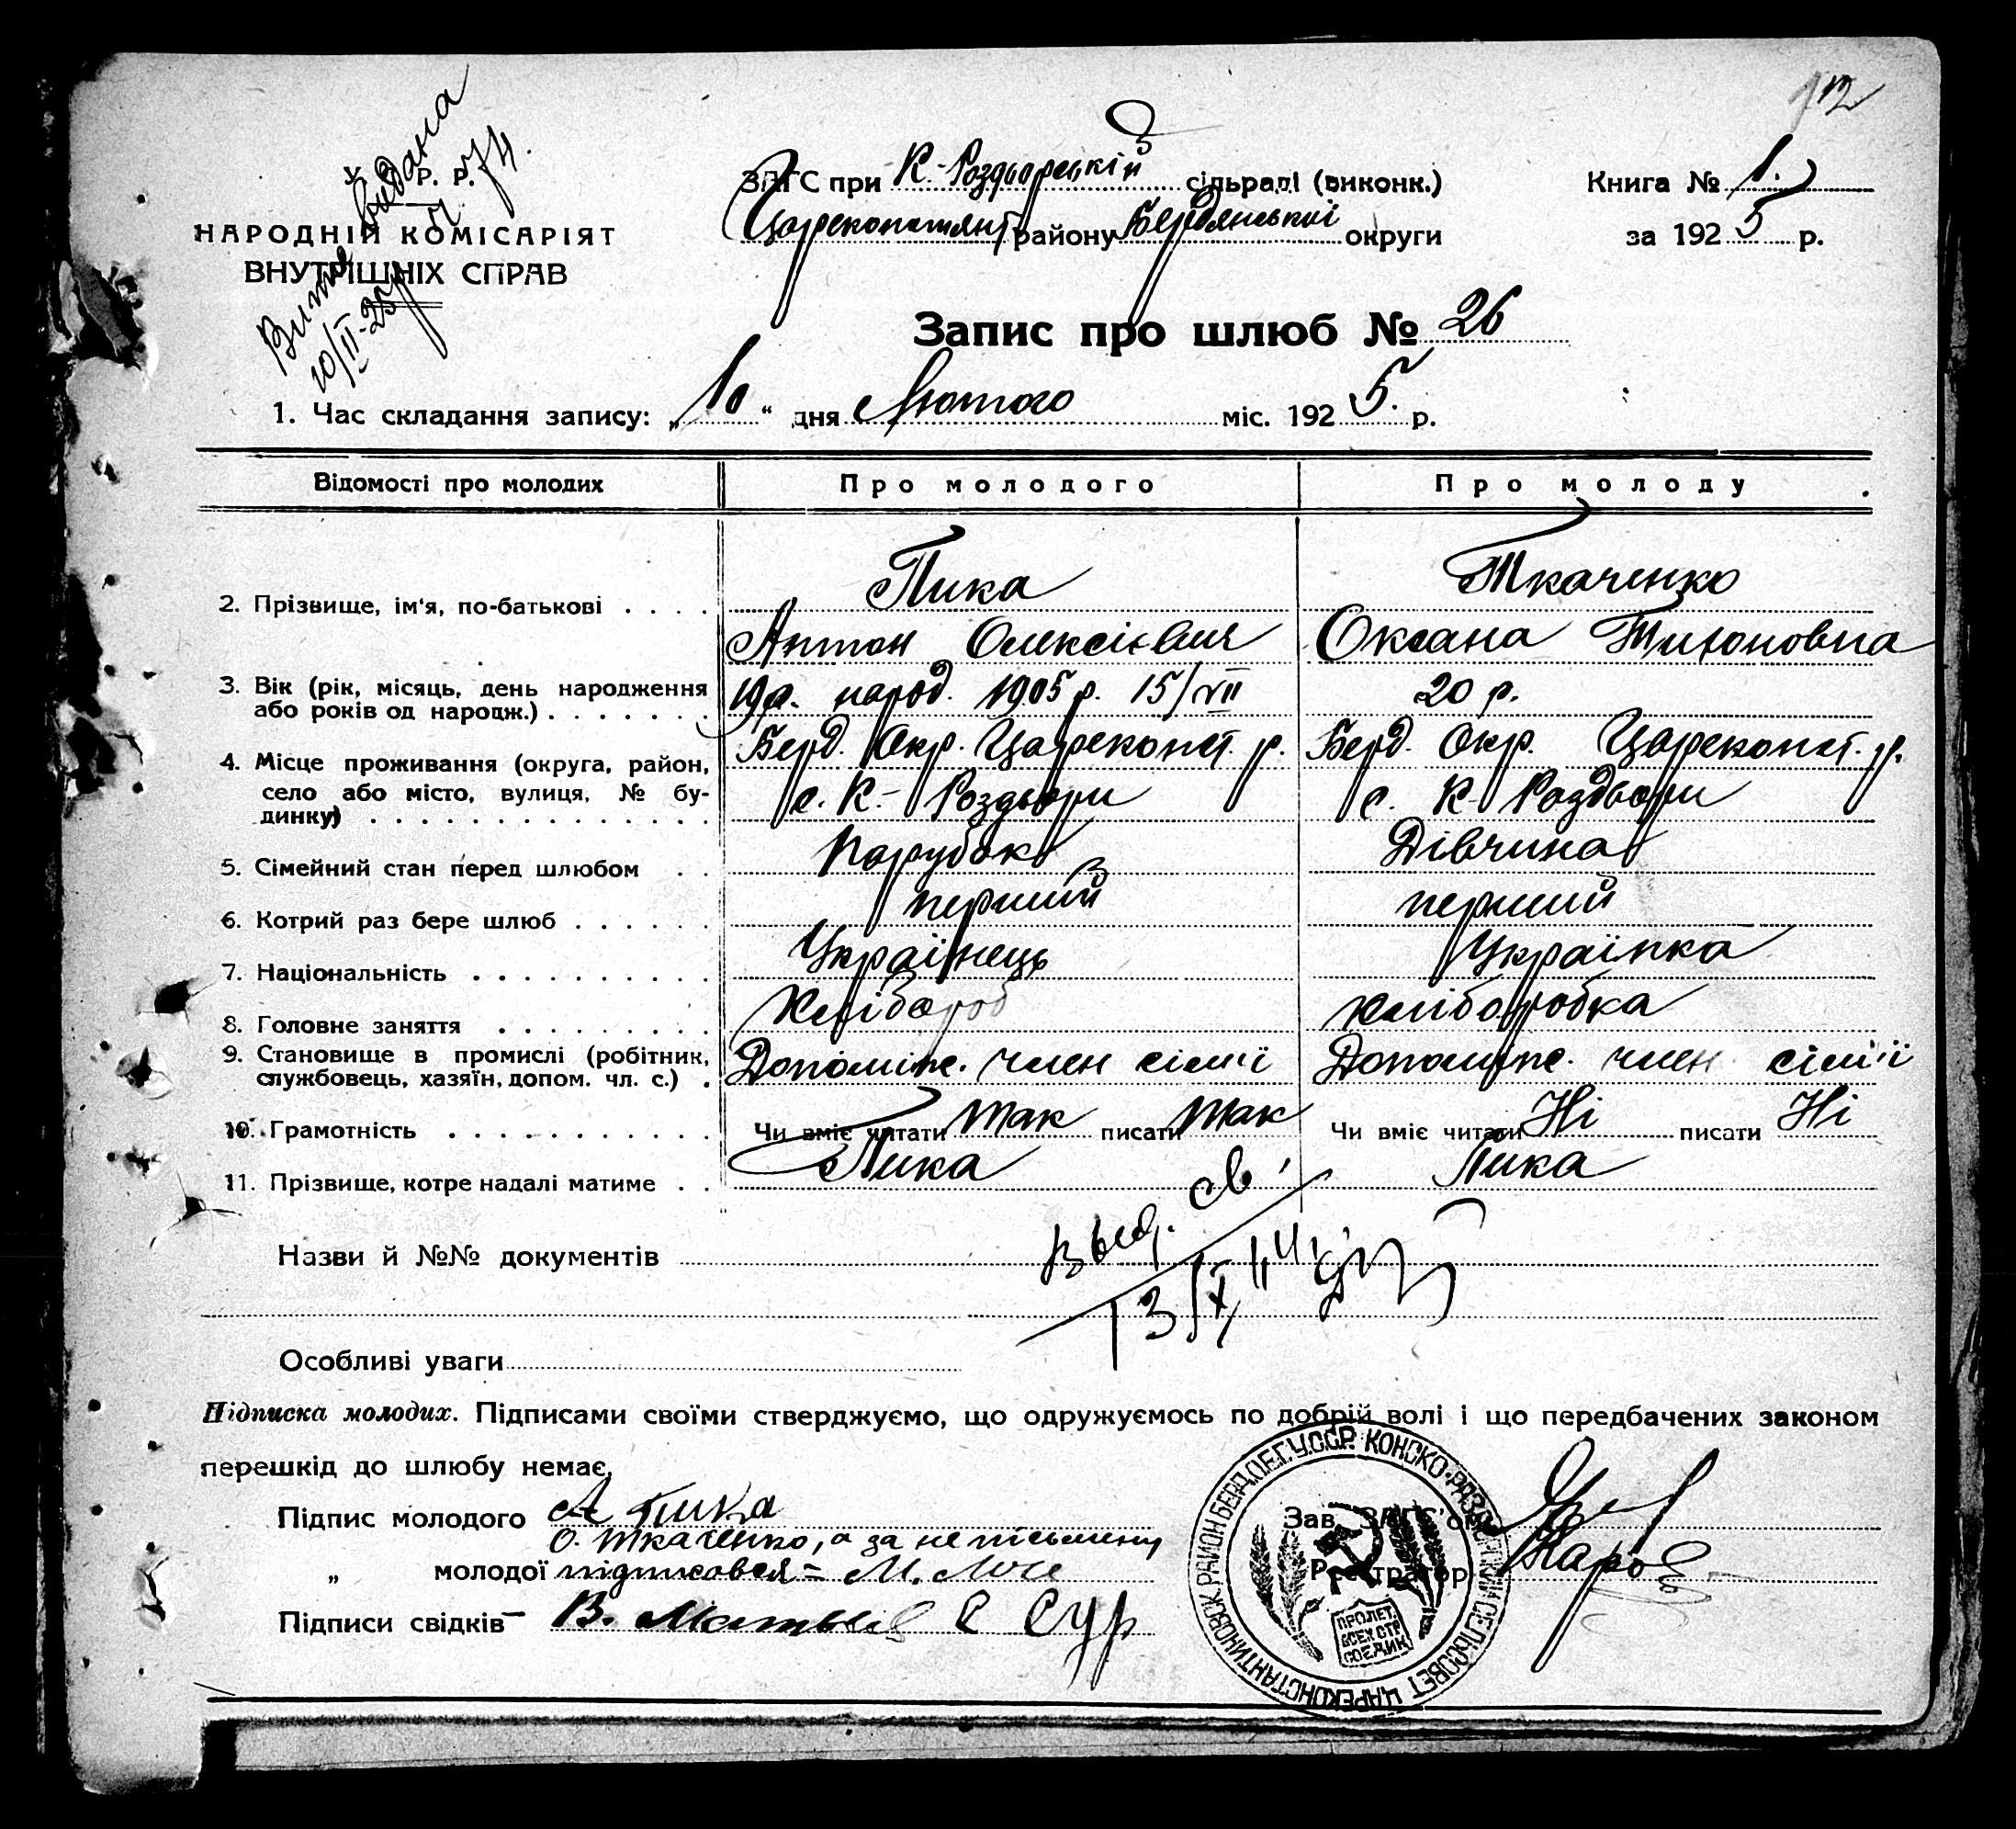 12
У. С. Р. Р.
НАРОДНІЙ КОМІСАРІЯТ
ВНУТРІШНІХ СПРАВ
Витяг видана
10/II-25р
ЗАГС при К.-Роздьорській сільраді (виконк.)
Цареконстянт району Бердянської округи
Книга № 1.
за 1925 р.
Запис про шлюб № 26
1. Час складання запису: „10“ дня Лютого міс. 1925. р.
Відомості про молодих Про молодого Про молоду
2. Прізвище, ім'я, по-батькові . . . . Пика Ткаченко
Антон Олексієвич Оксана Тихоновна
3. Вік (рік, місяць, день народження або років од народж.) . . . . . . . 19р. народ. 1905 р. 15/VII 20 р.
4. Місце проживання (округа, район, село або місто, вулиця, № будинку) . . . . . . . . . . . . . . Берд. Окр. Цареконст. р. Берд. Окр. Цареконст. р.
с. К.- Роздьори с. К. Роздьори
5. Сімейний стан перед шлюбом . . Парубок Дівчина
6. Котрий раз бере шлюб . . . . . . перший перший
7. Національність . . . . . . . . . . Українець Українка
8. Головне заняття . . . . . . . . . Хлібороб хліборобка
9. Становище в промислі (робітник, службовець, хазяїн, допом. чл. с.) . Допоміж. член сім'ї Допоміж. член сім'ї
10. Грамотність . . . . . . . . . . . Чи вміє читати Так писати Так Чи вміє читати Ні писати Ні
11. Прізвище, котре надалі матиме . . Пика Пика
Выд. св.
Назви й №№ документів
13/X 44
Особливі уваги
Підписка молодих. Підписами своїми стверджуємо, що одружуємось по добрій волі і що передбачених законом
перешкід до шлюбу немає.
Підпис молодого А Пика
О. Ткаченко, а за не письмену
„ молодої підписовся=
Підписи свідків
Зав. ЗАГС'ом
Реєстратор
КОНСКО-РАЗДОРСКИЙ СЕЛЬСОВЕТ ЦАРЕКОНСТАНТИНОВСК. РАЙОН БЕРД. О. Е. Г. У.С.С.Р.
ПРОЛЕТ.
ВСЕХ СТР
СОЕДИН